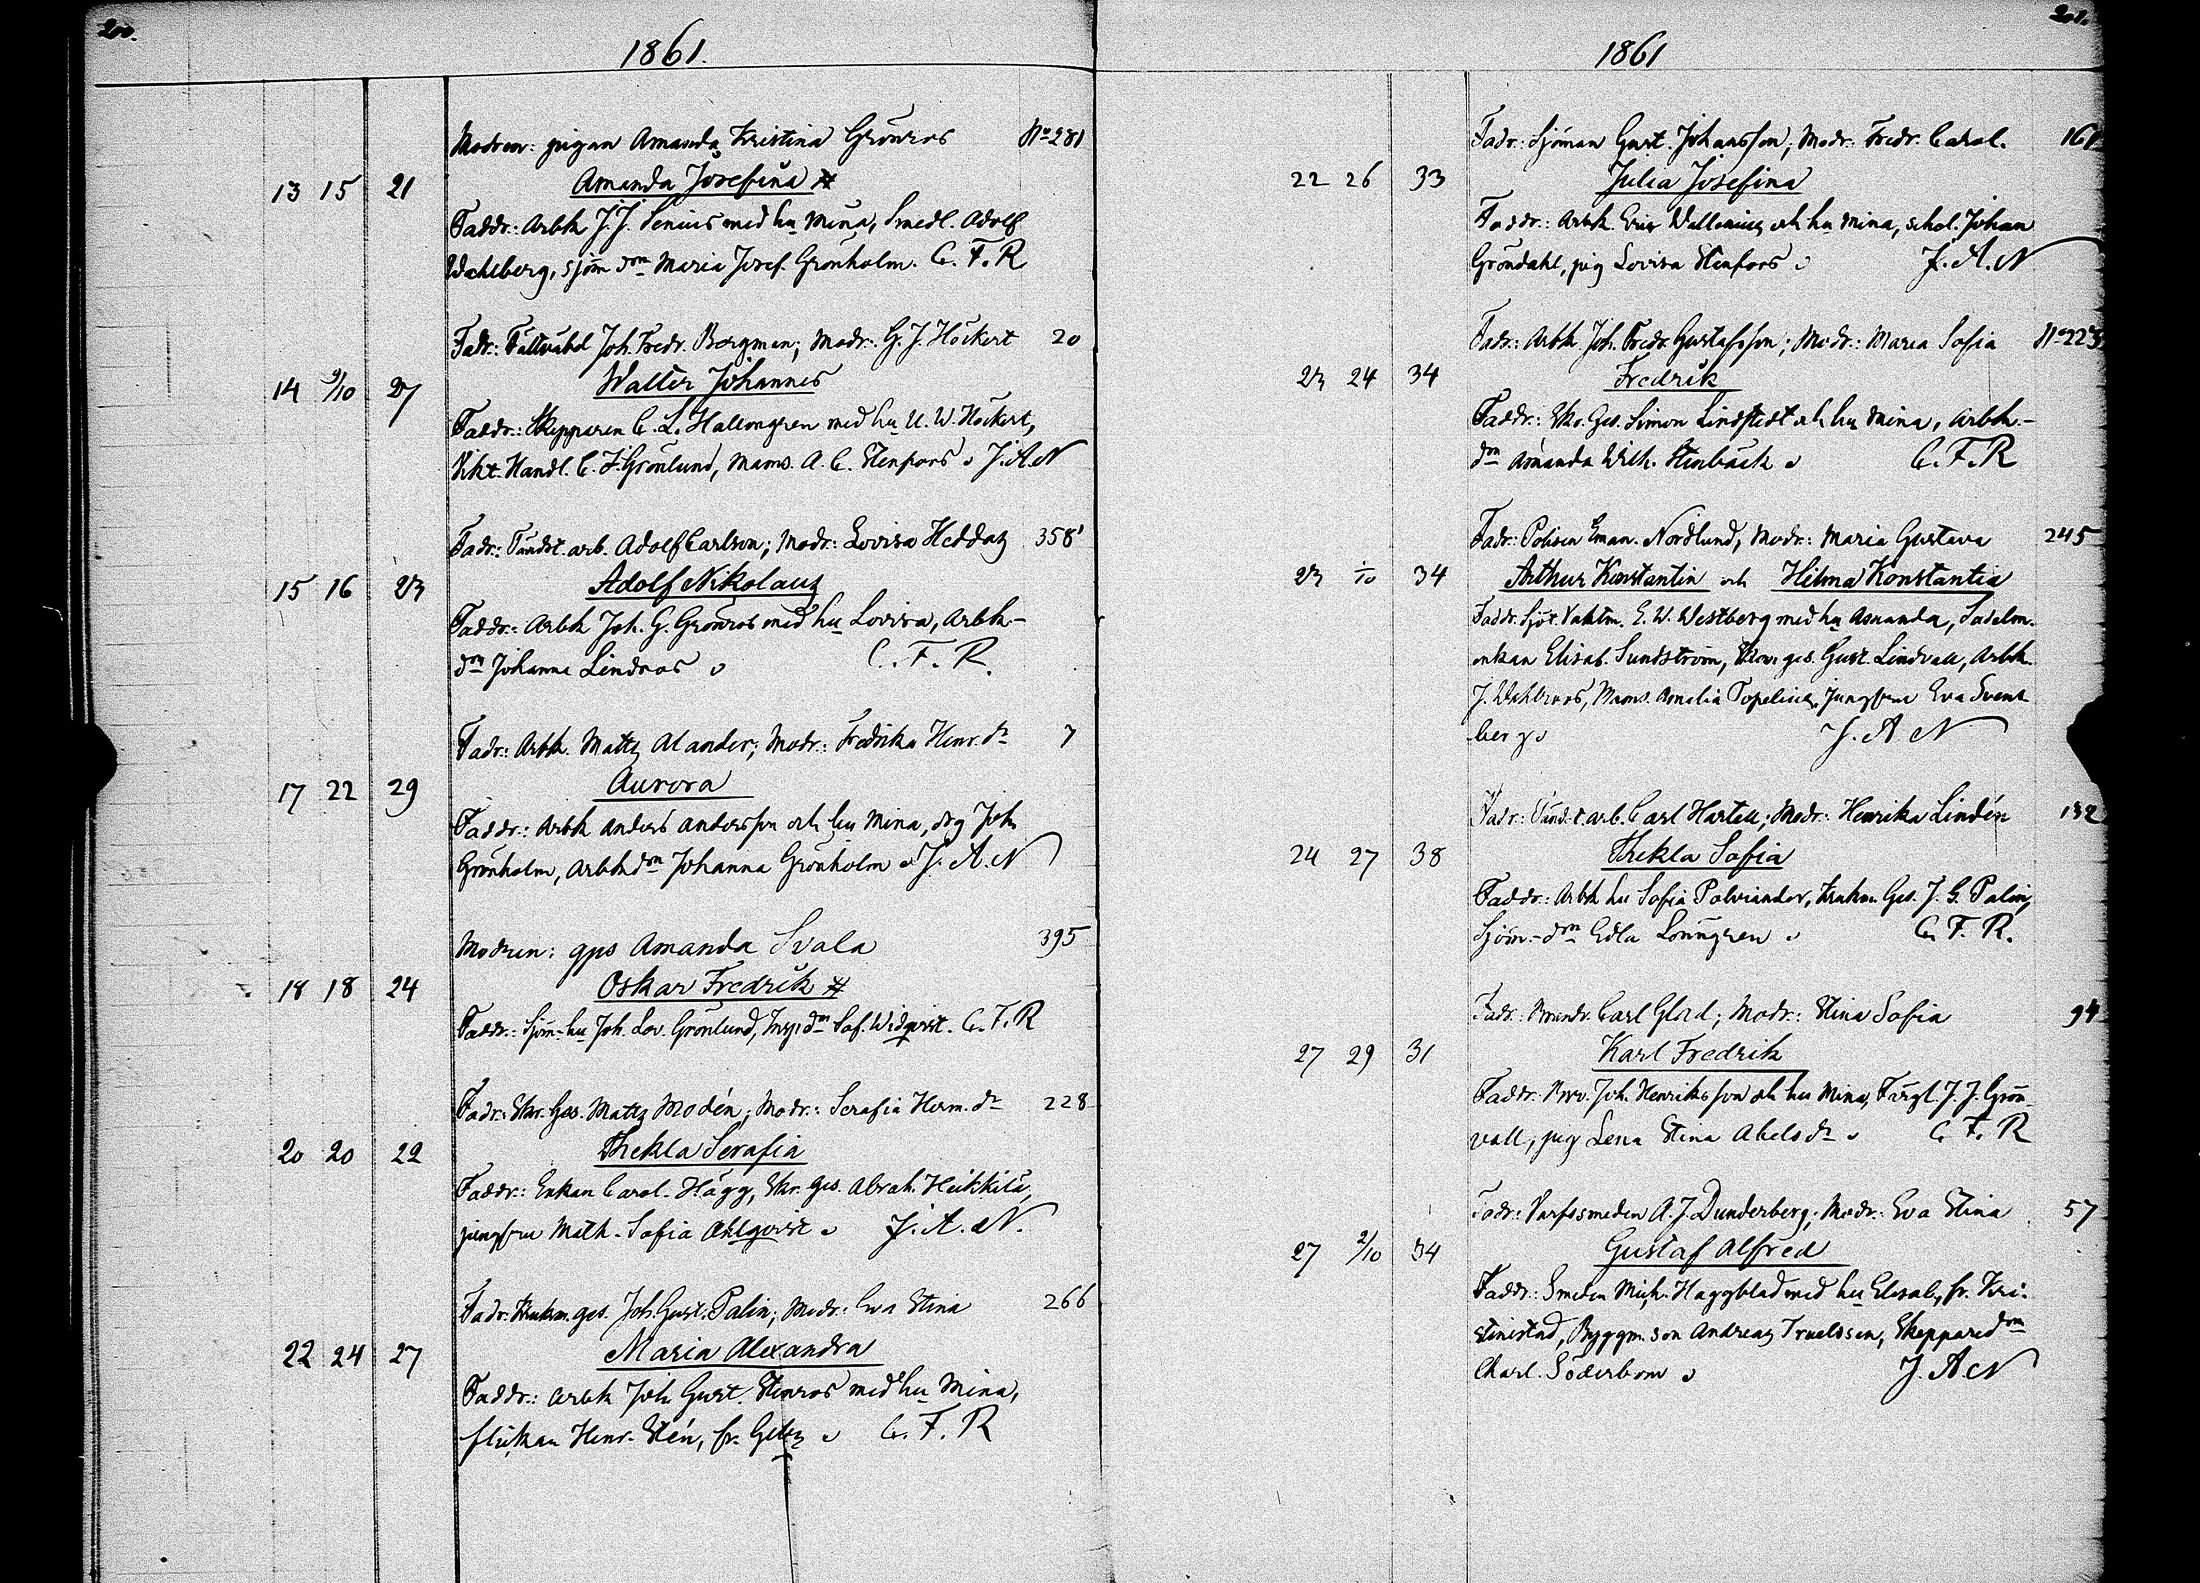 200.
1861.
Modren: pigan Amanda Kristina Grönros No 281
13 15 21 Amanda Josefina #
Faddr.: Arbk J. J. Senius med hu Mina, Smedl. Adolf
Wahlberg, sjöm dm Maria Josef. Grönholm. C. F. R
Fadr.: Fältväbel Joh. Fredr. Bergman; Modr: G. J. Höckert 20
14 9/10 27 Walter Johannes
Faddr.: Skepparen C. L. Hallongren med hu U. W. Höckert,
Vikt. Handl. C. F. Grönlund, Mams. A. C. Stenfors J. A. N
Fadr.: Tändst. arb. Adolf Carlson; Modr: Lovisa Hedda 358
15 16 23 Adolf Nikolaus
Faddr.: Arbk Joh. G. Grönros med hu Lovisa, Arbk-
dm Johanna Lindros C. F. R.
Fadr: Arbk. Matts Alander; Modr.: Fredrika Henr. dr 7
17 22 29 Aurora
Faddr.: Arbk Anders Andersson och hu Mina, drg Joh.
Grönholm, Arbk dm Johanna Grönholm J. A. N
Modren: gps Amanda Svala 395
18 18 24 Oskar Fredrik #
Faddr.: Sjöm-hu Joh. Lov. Grönlund, Insp. dm Sof. Widqvist. C. F. R
Fadr: Skr. Ges. Matts Modén; Modr.: Serafia Herm. dr 228
20 20 22 Thekla Serafia
Faddr.: Enkan Carol. Hägg, Skr. Ges. Abrah. Heikkilä,
jungfru Math. Sofia Ahlqvist J. A. N.
Fadr: Krukm. ges. Joh. Gust. Palin; Modr: Eva Stina 266
22 24 27 Maria Alexandra
Faddr.: Arbk Joh. Gust. Stenros med hu Mina,
flickan Henr. Stén, fr. C. F. R
201.
1861
Fadr: Sjöman Gust. Johansson; Modr: Fredr. Carol. 161
22 26 33 Julia Josefina
Faddr.: Arbk. Eric Wallenius och hu Mina, schol. Johan
Gröndahl, pig Lovisa Stenfors J. A. N
Fadr: Arbk Joh. Fredr. Gustafsson; Modr.: Maria Sofia No 223
23 24 34 Fredrik
Faddr.: Skr. Ges. Simon Lindstedt och hu Mina, Arbk.-
dm Amanda Wilh. Stenbäck C. F. R
Fadr: Polisen Eman. Nordlund, Modr.: Maria Gustava 245
23 1/10 34 Arthur Konstantin och Hilma Konstantia
Faddr. Sjöt. Vaktm. E. W. Westberg med hu Amanda, Sadelm.
enkan Elisab. Sundström, ges. Gust. Lindvall, Arbk.
J. Wahlroos, Mams. Amalia Topelius, Jungfrun Eva Svens
berg J. A N
Fadr: Tändst. arb. Carl Hartell; Modr: Henrika Lindén 132
24 27 38 Thekla Sofia
Faddr.: Arbk hu Sofia Polviander, Krukm. Ges. J. G. Palin,
Sjöm.-dm Edla Lönngren C. F. R.
Fadr: Carl Glord; Modr: Stina Sofia 94
27 29 31 Karl Fredrik
Faddr. Joh. Henriksson och hu Mina, Färgl. J. J. Grön-
vall, pig Lena Stina Abels dr C. F. R
Fadr: Varfssmeden A. J. Dunderberg; Modr. Eva Stina 57
27 2/10 34 Gustaf Alfred
Faddr.: Smeden Mich. Häggblad med hu Elisab, fr. Kri-
stinestad, Byggm. son Andreas Truelssen, Skeppare dm
Charl. Söderbom J. A. N